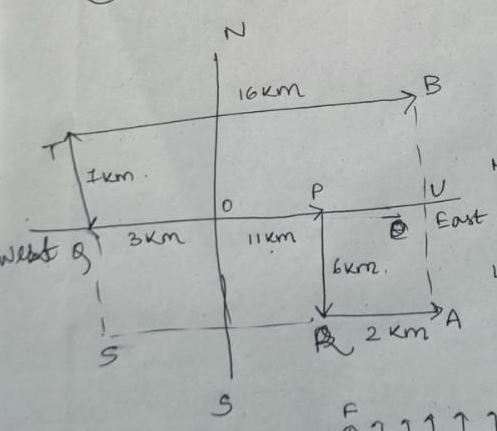 N
16km
B
T
1km.
O
P
U
West
Q
3km
11km
East
6km.
S
R
2km
A
S
F